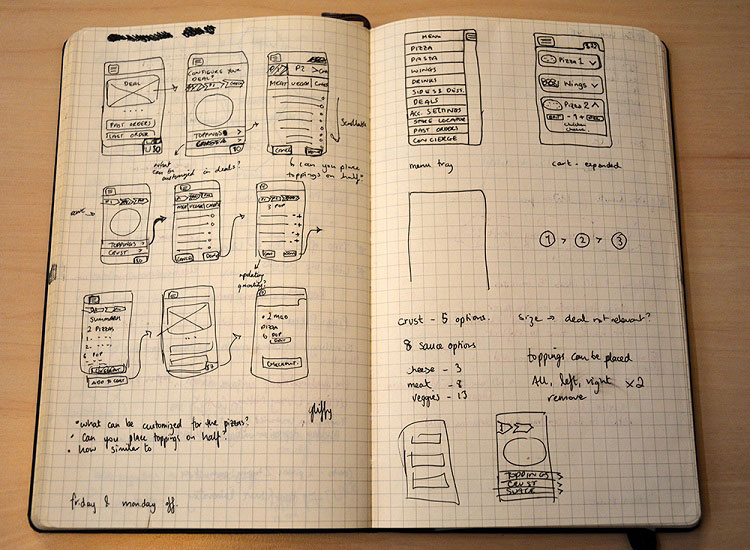 DEAL
PAST ORDERS
LAST ORDER
CONFIGURE YOUR
DEAL?
TOPPINGS >
$0
P2
MEAT VEGGIE CHEESE
CANCEL DONE
scrollable
what
can be
customized in deals?
↳ can you place
toppings on half?
TOPPINGS >
CRUST >
$0
MEAT VEGGIE CHEESE
CANCEL DONE
3 POP
updating
quantity?
SUMMARY
2 PIZZAS
1.
2.
6 POP
ADD TO CART
2 MED
PIZZA
6 POP
CHECKOUT
gliffy
• what can be customized for the pizzas?
• Can you place toppings on half?
• how similar to
friday & monday off.
MENU
PIZZA
PASTA
WINGS
DRINKS
SIDES & DESS.
DEALS
ACC. SETTINGS
STORE LOCATOR
PAST ORDERS
CONCIERGE
menu tray
Pizza 1
Wings
Pizza 2
- 1 +
cart - expanded
1 > 2 > 3
crust - 5 options.
size → deal not relevant?
8 sauce options
cheese - 3
meat - 8
veggies - 13
toppings can be placed
All, left, right x2
remove
TOPPINGS >
CRUST >
SAUCE >